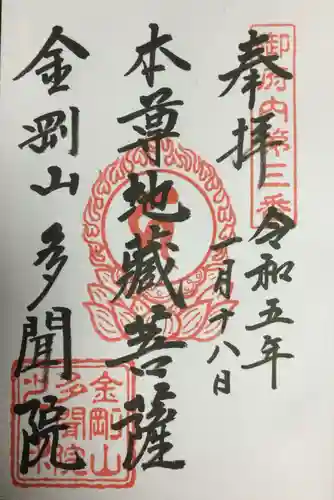 奉拝
御府内第三番
令和五年
一月十八日
本尊地蔵菩薩
金剛山多聞院
金剛山
多聞院